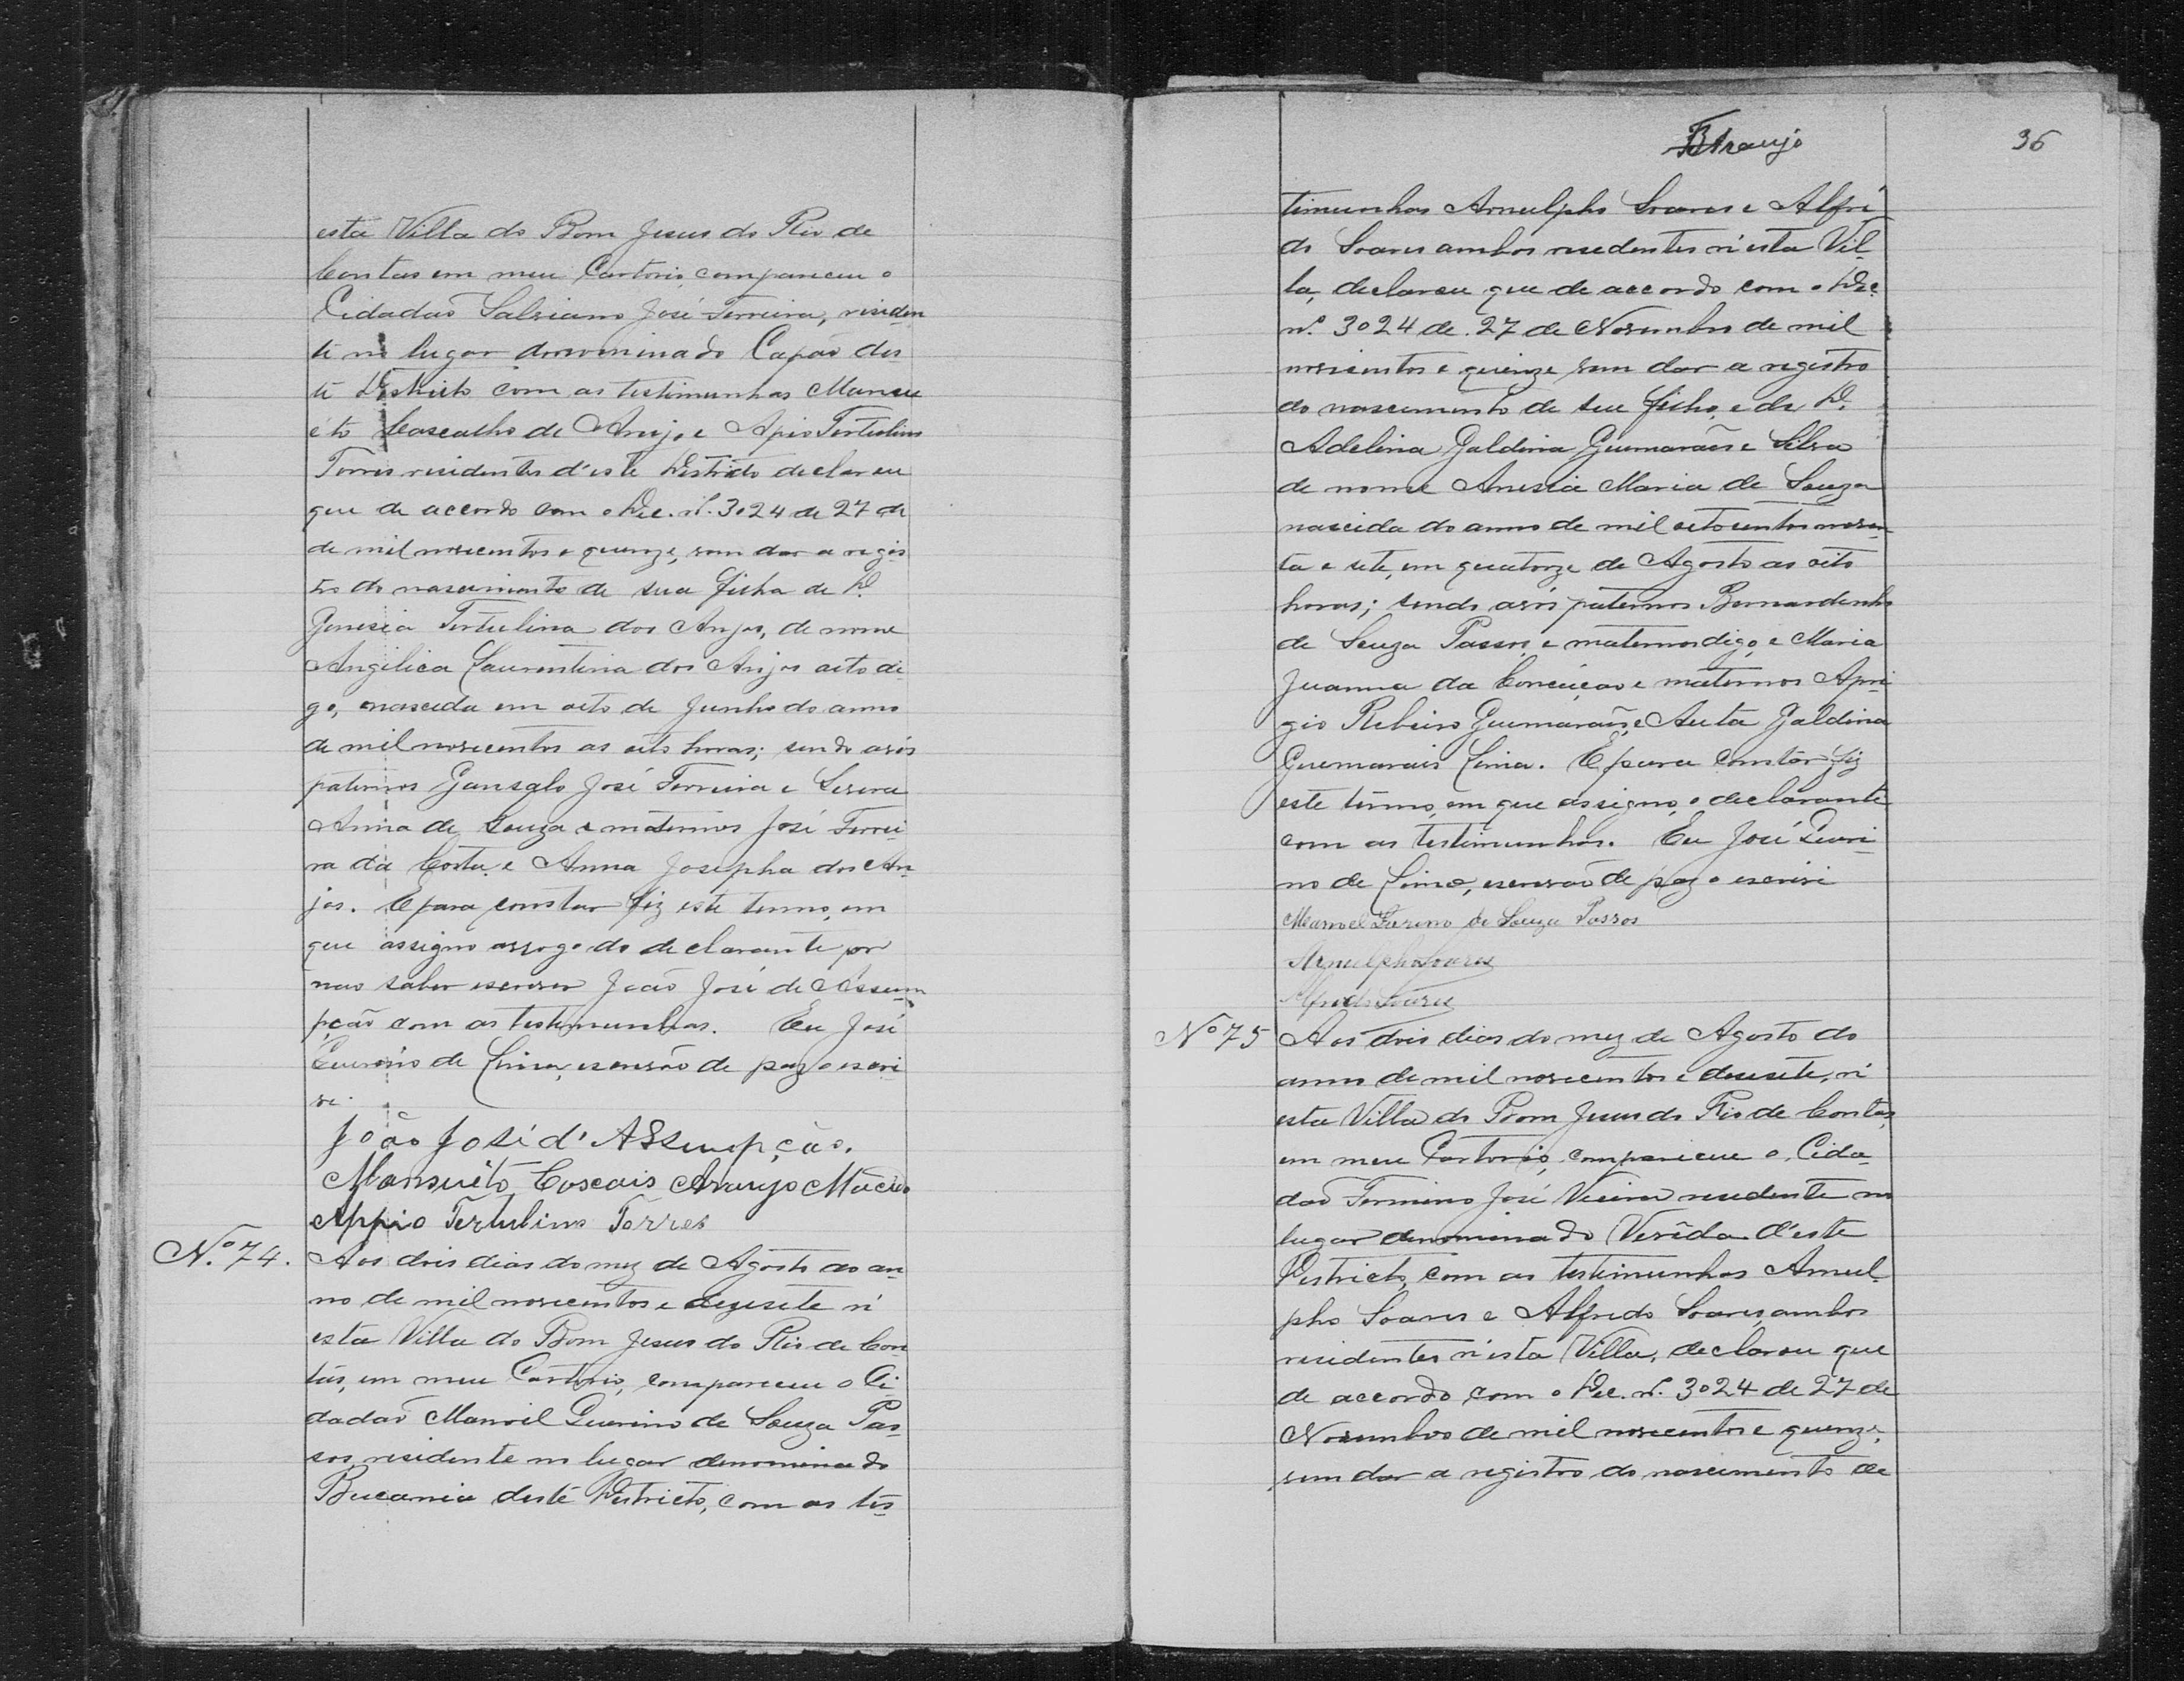 esta Villa do Bom Jesus do Rio de
Contas em meu Cartorio, compareceu o
Cidadão Salviano José Ferreira, residen
te no lugar denominado Capão des
te Districto com as testimunhas Mansu
éto Cascalho de Araujo e Apio Tertulino
Torres residentes d'este Districto declarou
que de accordo com o Dec. nº. 3024 de 27 de
de mil novecentos e quinze, vem dar a regis
tro do nascimento de sua filha de D.
Genesia Tertulina dos Anjos, de nome
Angilica Laurentina dos Anjos oito di-
go, nascida em oito de Junho do anno
de mil novecentos as oito horas; sendo avós
paternos Gansalo José Ferreira e
Anna de Souza e maternos José Ferrei-
ra da Costa e Anna Josepha dos An-
jos. E para constar fiz este termo, em
que assigno arrogo do declarante por
nao saber escrever João José de Assum
pção com as testimunhas. Eu José
de Lima, escrivão de paz o escri-
vi.
João José d'Assumpção.
Mansuêto Cascais Araujo Macêdo
Appio Tertulino Torres
N.º 74. Aos dois dias do mez de Agosto do an-
no de mil novecentos e dezesete n'
esta Villa do Bom Jesus do Rio de Con-
tas, em meu Cartorio, compareceu o Ci-
dadão Manoel Guerino de Souza Pas-
sos, residente no lugar denominado
Bucania deste Districto, com as tes-
BAraujo
36
timunhas Arnulpho Soares e Alfre
do Soares ambos residentes n'esta Vil-
la, declarou que de accordo com o Dec.
nº. 3024 de 27 de Novembro de mil
novecentos e quinze vem dar a registro
do nascimento de seu filho, e de D.
Adelina Galdina Guimarães e Silva
de nome Anesia Maria de Souza
nascida do anno de mil oitocentos noven-
ta e sete, em quatorze de Agosto as oito
horas; sendo avós paternos Bernardinho
de Souza Passos, e maternos digo, e Maria
Juanna da Conceiçao e maternos Apri-
gio Ribeiro Guimarães, e Auta Galdina
Guimarais Lima. E para constar fiz
este termo, em que assigno, o declarante
com as testimunhas. Eu José Queri-
no de Lima, escrivão de paz o escrivi
Manoel Guerino de Souza Passos
Arnulpho Soares
Alfredo Soares
Nº 75 Aos dois dias do mez de Agosto do
anno de mil novecentos e desesete, n'
esta Villa do Bom Jesus do Rio de Contas,
em meu Cartorio, compareceu o Cida-
dão Fermino José Vieira residente no
lugar denominado Verêda d'este
Districto, com as testimunhas Arnul-
pho Soares e Alfredo Soares, ambos
residentes n'esta Villa, declarou que
de accordo com o Dec. nº. 3024 de 27 de
Novembro de mil novecentos e quinze,
vem dar a registro do nascimento de